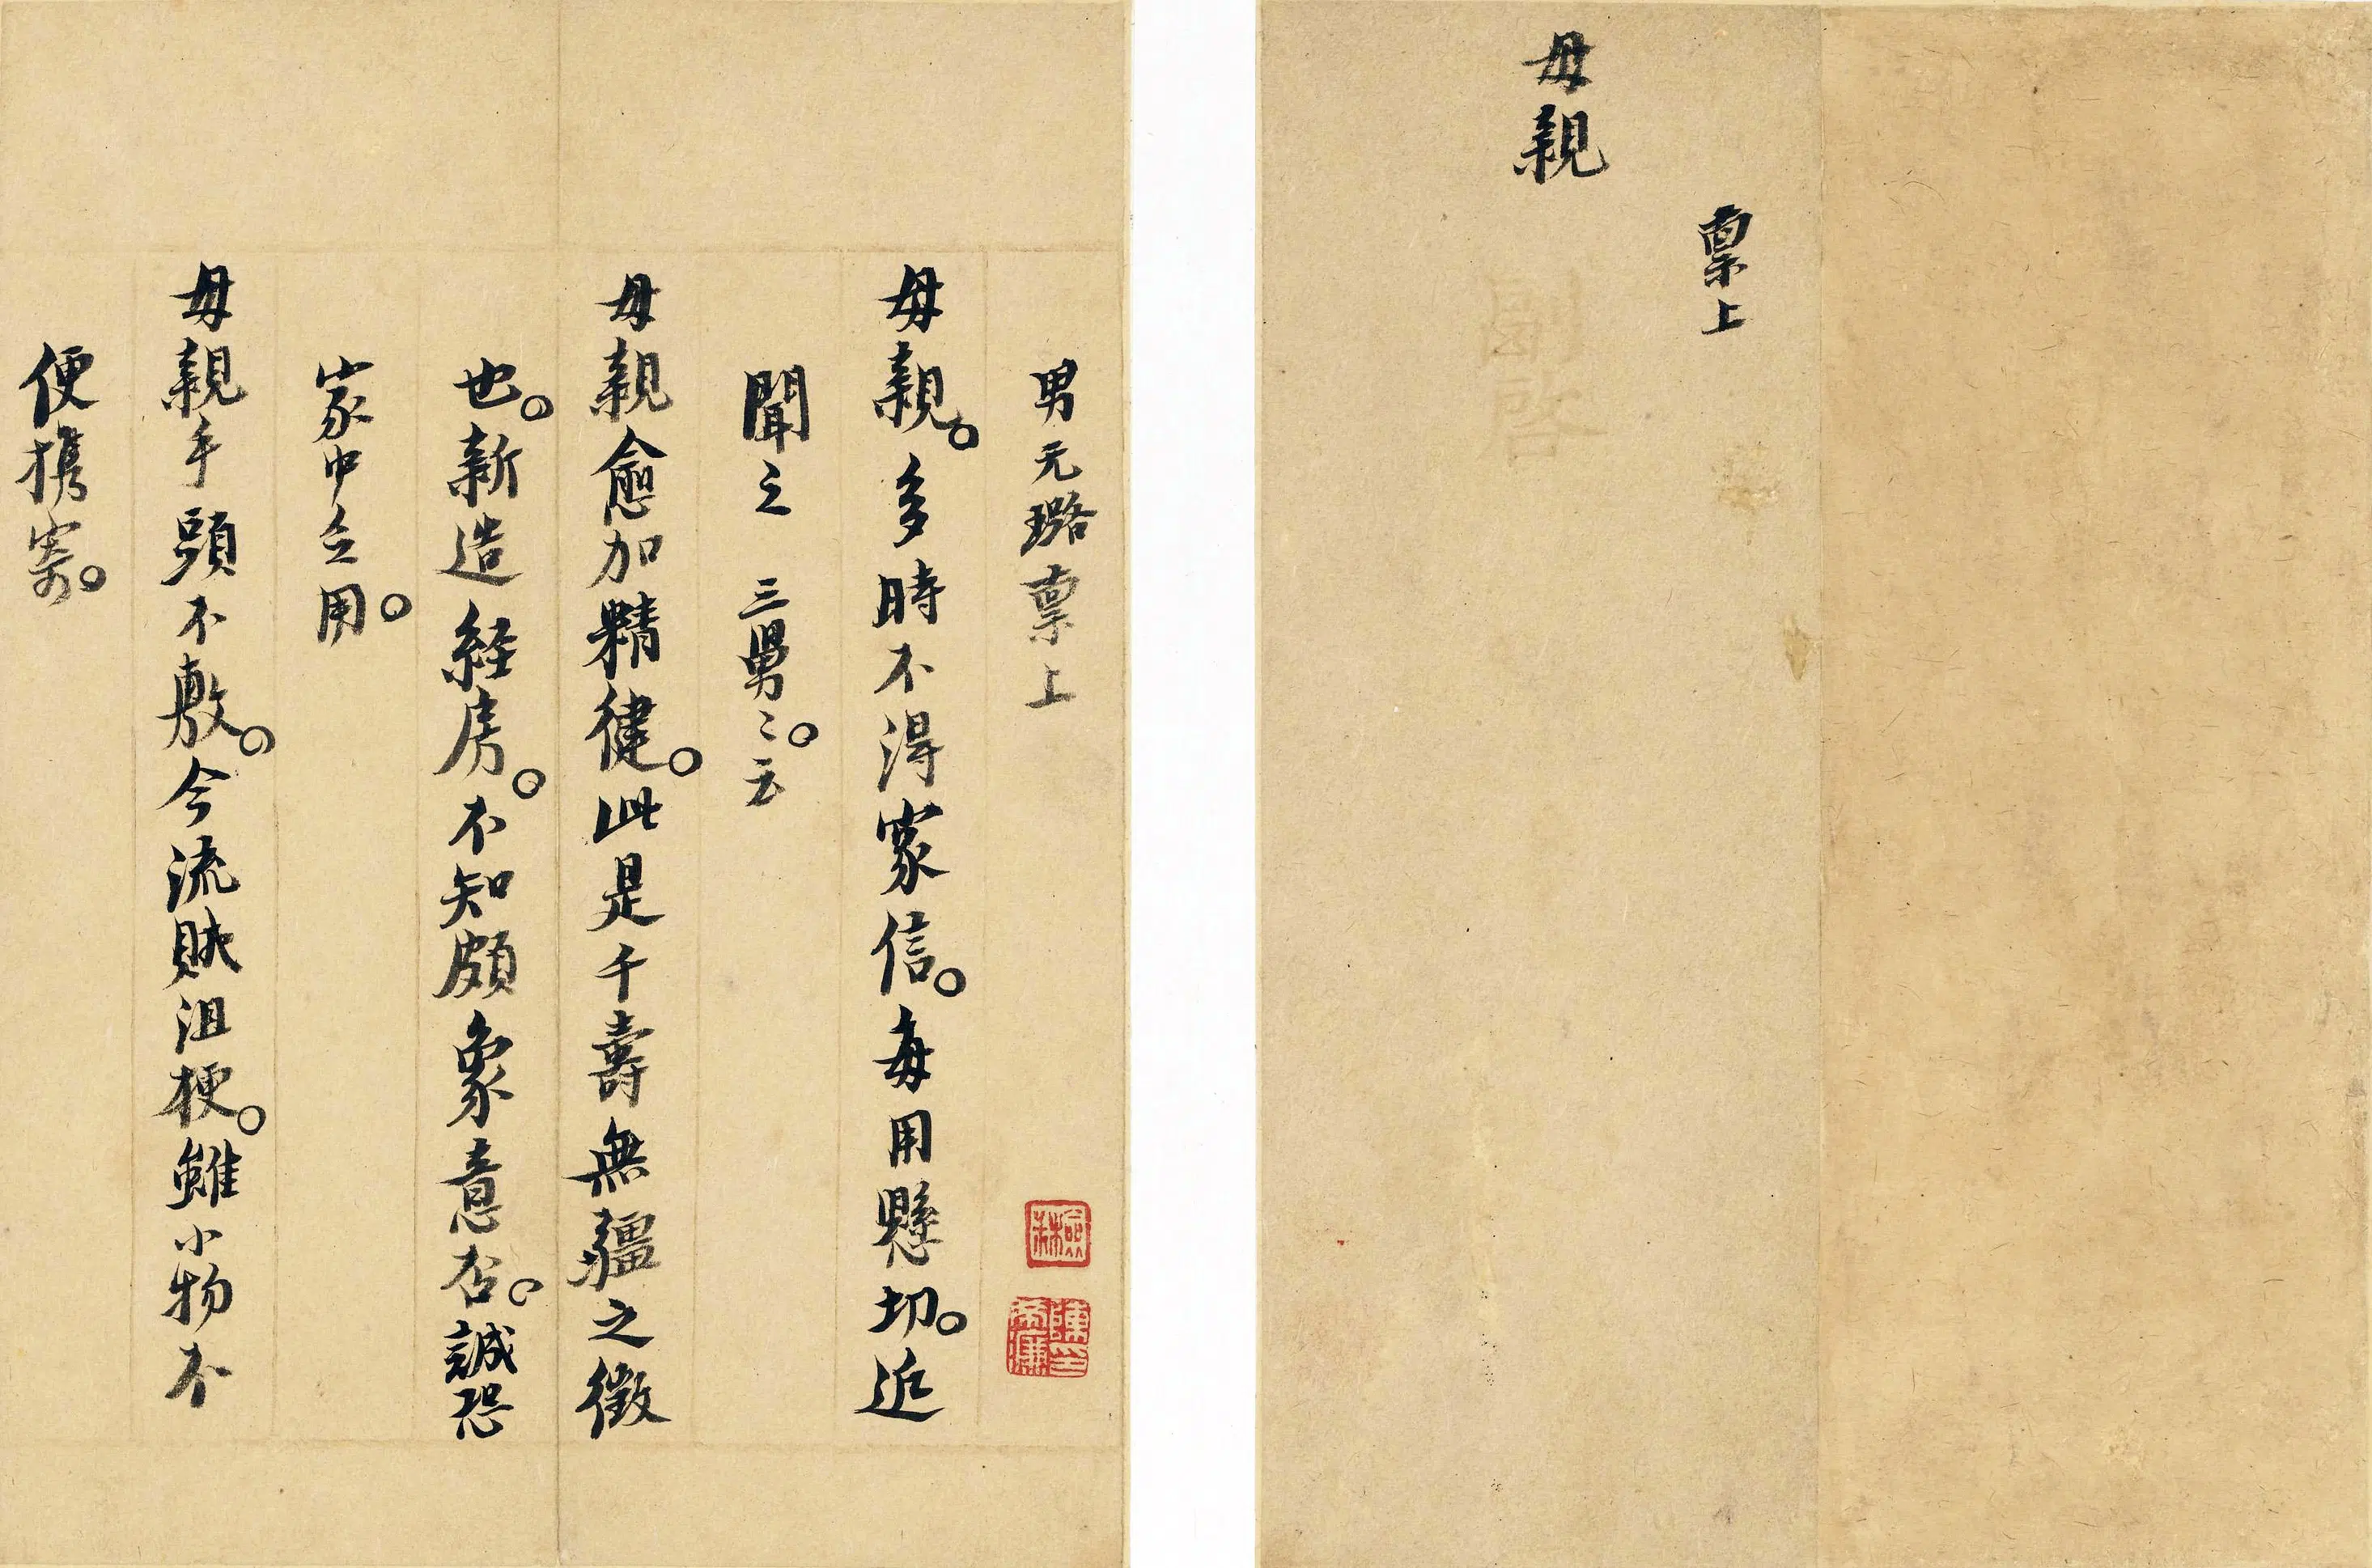 稟上
母親
男元璐稟上
母親。多時不得家信。每用懸切。近
聞之 三舅〻。云
母親愈加精健。此是千壽無疆之徵
也。新造経房。不知頗象意否。誠恐
家中乏用。
母親手頭不敷。今流賊沮梗。雖小物不
便携寄。